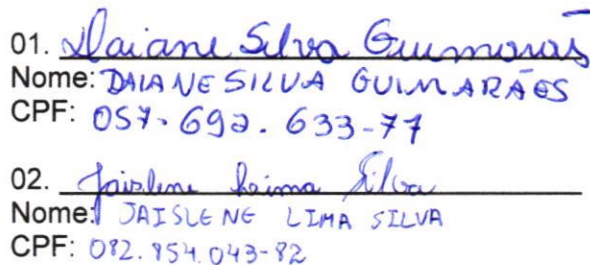 01. Daiane Silva Guimarães
Nome: DAIANE SILVA GUIMARÃES
CPF: 057.692.633-77
02. Jaislene Lima Silva
Nome: JAISLENE LIMA SILVA
CPF: 082.854.043-82